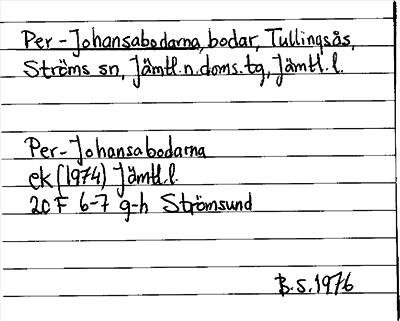 Per-Johansabodarna, bodar, Tullingsås,
Ströms sn, Jämtl.n.doms.tg, Jämtl.l.
Per-Johansabodarna
ek (1974) Jämtl.l.
20 F 6-7 g-h Strömsund
B.S.1976